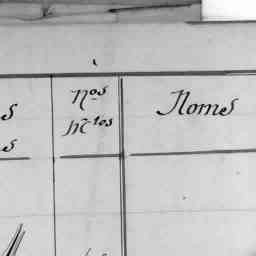 s
s
Nos
Mtos
Nomes